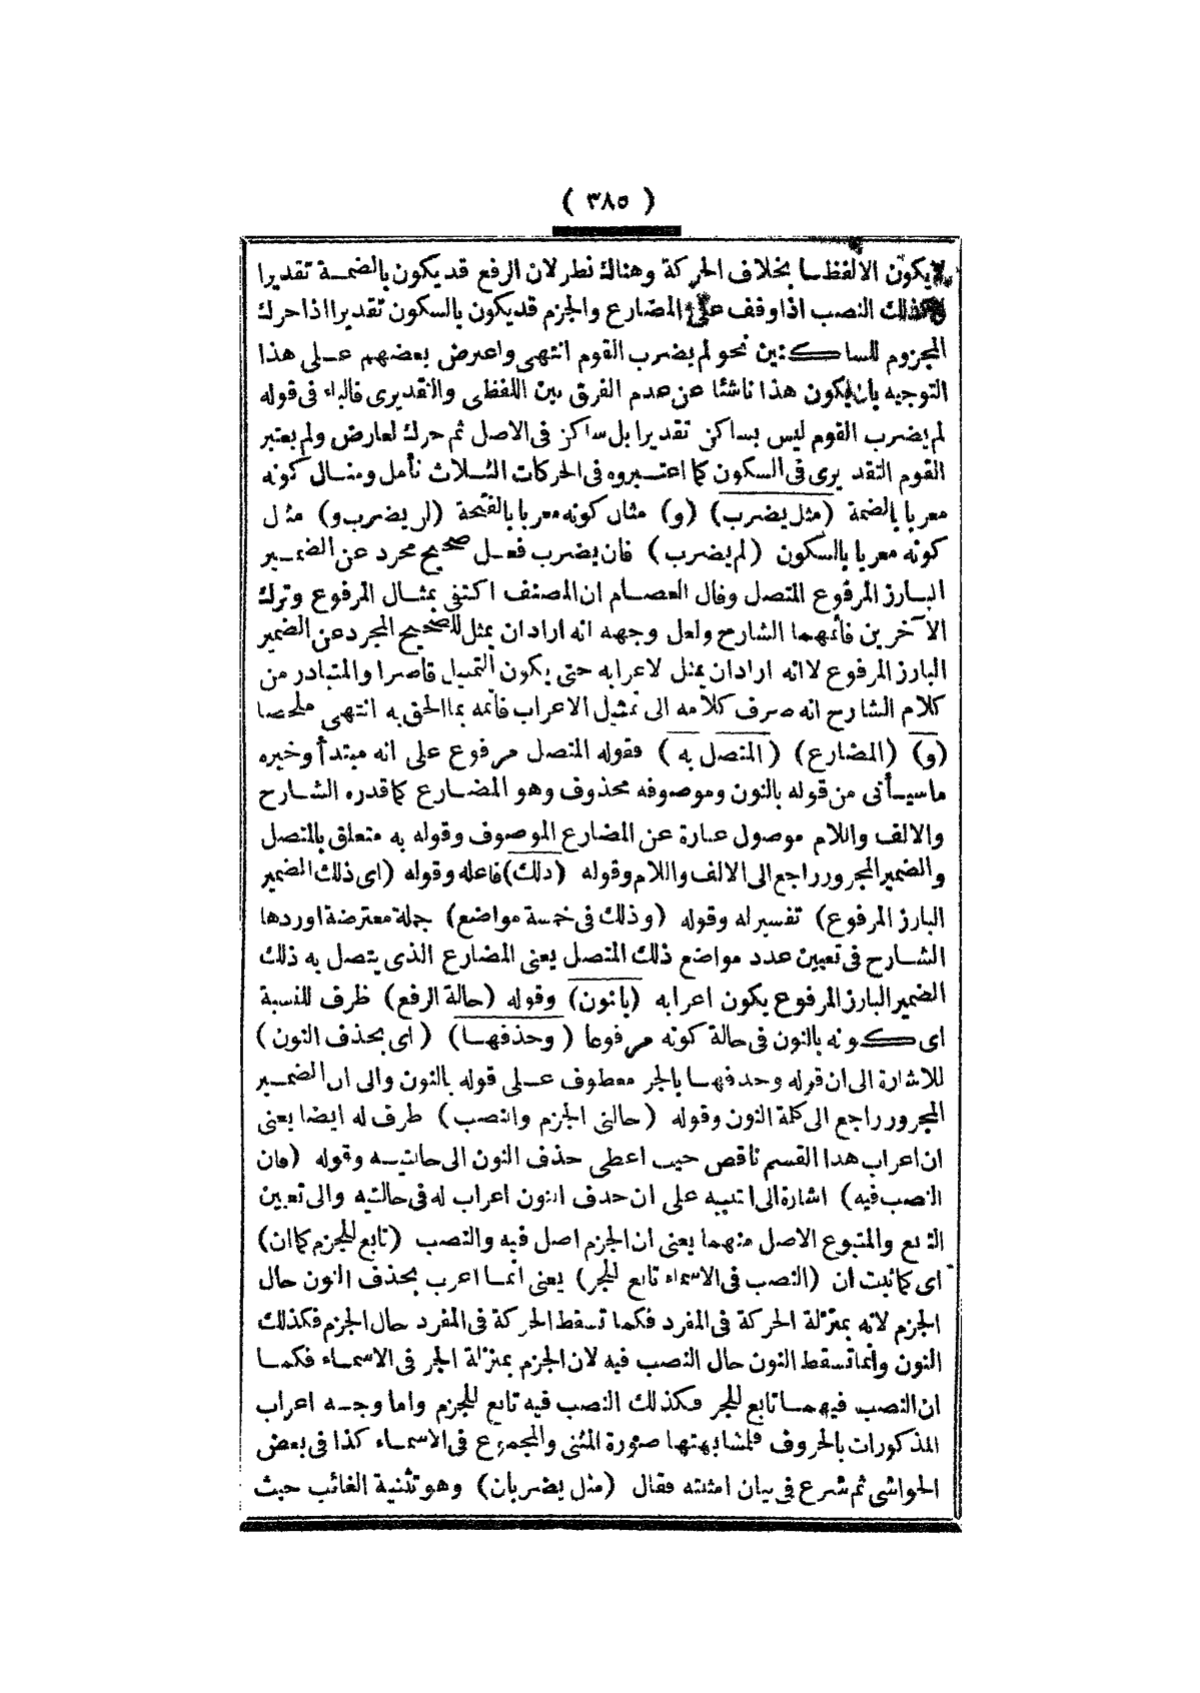 ( ٣٨٥ )
لا يكون الا لفظيا بخلاف الحركة وهناك نظر لان الرفع قد يكون بالضمة تقديرا
وكذلك النصب اذا وقف على المضارع والجزم قد يكون بالسكون تقديرا اذا حرك
المجزوم للساكنين نحو لم يضرب القوم انتهى واعترض بعضهم على هذا
التوجيه بان يكون هذا ناشئا عن عدم الفرق بين اللفظى والتقديرى فالباء فى قوله
لم يضرب القوم ليس بساكن تقديرا بل ساكن فى الاصل ثم حرك لعارض ولم يعتبر
القوم التقديرى فى السكون كما اعتبروه فى الحركات الثلاث تأمل ومثال كونه
معربا بالضمة (مثل يضرب) (و) مثال كونه معربا بالفتحة (لن يضرب و) مثل
كونه معربا بالسكون (لم يضرب) فان يضرب فعل صحيح مجرد عن الضمير
البارز المرفوع المتصل وقال العصام ان المصنف اكتفى بمثال المرفوع وترك
الآخرين فأتمهما الشارح ولعل وجهه انه اراد ان يمثل للصحيح المجرد عن الضمير
البارز المرفوع لا انه اراد ان يمثل لاعرابه حتى يكون التمثيل قاصرا والمتبادر من
كلام الشارح انه صرف كلامه الى تمثيل الاعراب فأتمه بما الحق به انتهى ملخصا
(و) (المضارع) (المتصل به) فقوله المتصل مرفوع على انه مبتدأ وخبره
ما سيأتى من قوله بالنون وموصوفه محذوف وهو المضارع كما قدره الشارح
والالف واللام موصول عبارة عن المضارع الموصوف وقوله به متعلق بالمتصل
والضمير المجرور راجع الى الالف واللام وقوله (ذلك) فاعله وقوله (اى ذلك الضمير
البارز المرفوع) تفسير له وقوله (وذلك فى خمسة مواضع) جملة معترضة اوردها
الشارح فى تعيين عدد مواضع ذلك المتصل يعنى المضارع الذى يتصل به ذلك
الضمير البارز المرفوع يكون اعرابه (بالنون) وقوله (حالة الرفع) ظرف للنسبة
اى كونه بالنون فى حالة كونه مرفوعا (وحذفها) (اى بحذف النون)
للاشارة الى ان قوله وحذفها بالجر معطوف على قوله بالنون والى ان الضمير
المجرور راجع الى كلمة النون وقوله (حالتى الجزم والنصب) ظرف له ايضا يعنى
ان اعراب هذا القسم ناقص حيث اعطى حذف النون الى حالتيه وقوله (فان
النصب فيه) اشارة الى تنبيه على ان حذف النون اعراب له فى حالتيه والى تعيين
التابع والمتبوع الاصل منهما يعنى ان الجزم اصل فيه والنصب (تابع للجزم كما ان)
اى كما ثبت ان (النصب فى الاسماء تابع للجر) يعنى انما اعرب بحذف النون حال
الجزم لانه بمنزلة الحركة فى المفرد فكما تسقط الحركة فى المفرد حال الجزم فكذلك
النون وانما تسقط النون حال النصب فيه لان الجزم بمنزلة الجر فى الاسماء فكما
ان النصب فيهما تابع للجر فكذلك النصب فيه تابع للجزم واما وجه اعراب
المذكورات بالحروف فلمشابهتها صورة المثنى والمجموع فى الاسماء كذا فى بعض
الحواشى ثم شرع فى بيان امثلته فقال (مثل يضربان) وهو تثنية الغائب حيث